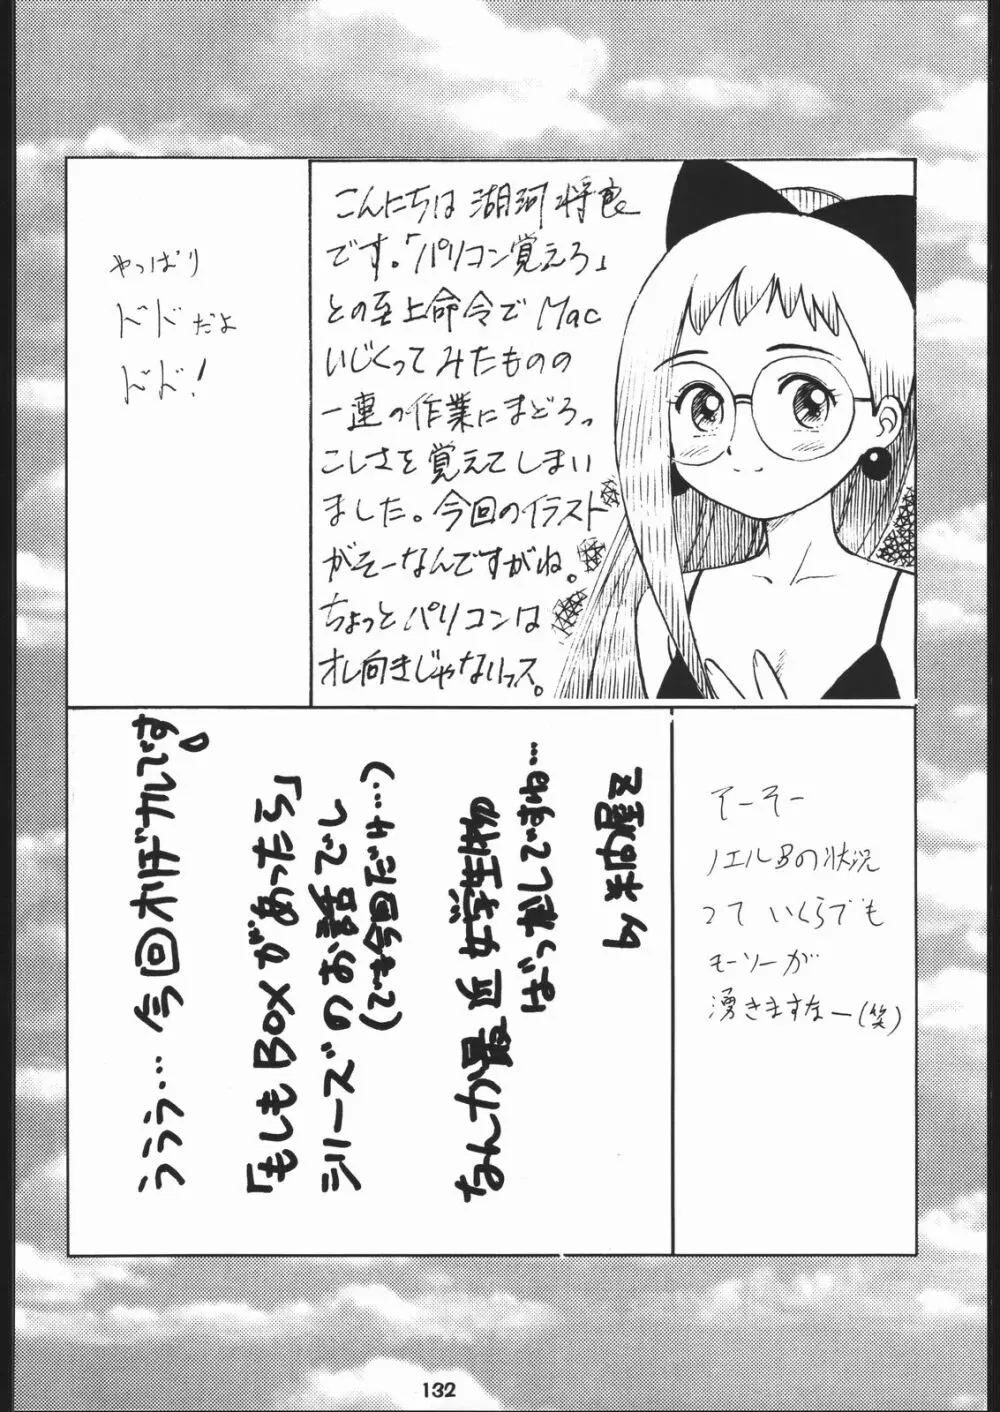 こんにちは 湖河将良
です。「パソコン覚えろ」
との至上命令で Mac
いじくってみたものの
一連の作業にまどろっ
こしさを覚えてしまい
ました。今回のイラスト
がそーなんですがね。
ちょっとパソコンは
オレ向きじゃないっス。
やっぱり
ドドだよ
ドド!
そーそー
ノエルBの状況
って いくらでも
モーソーが
湧きますなー(笑)
ううう… 今回オリジナルです
「もしもBOXがあったら」
シリーズのお話でし
(でも今回だけ…)
なんか最近女学生物
ばっかしですね…
132